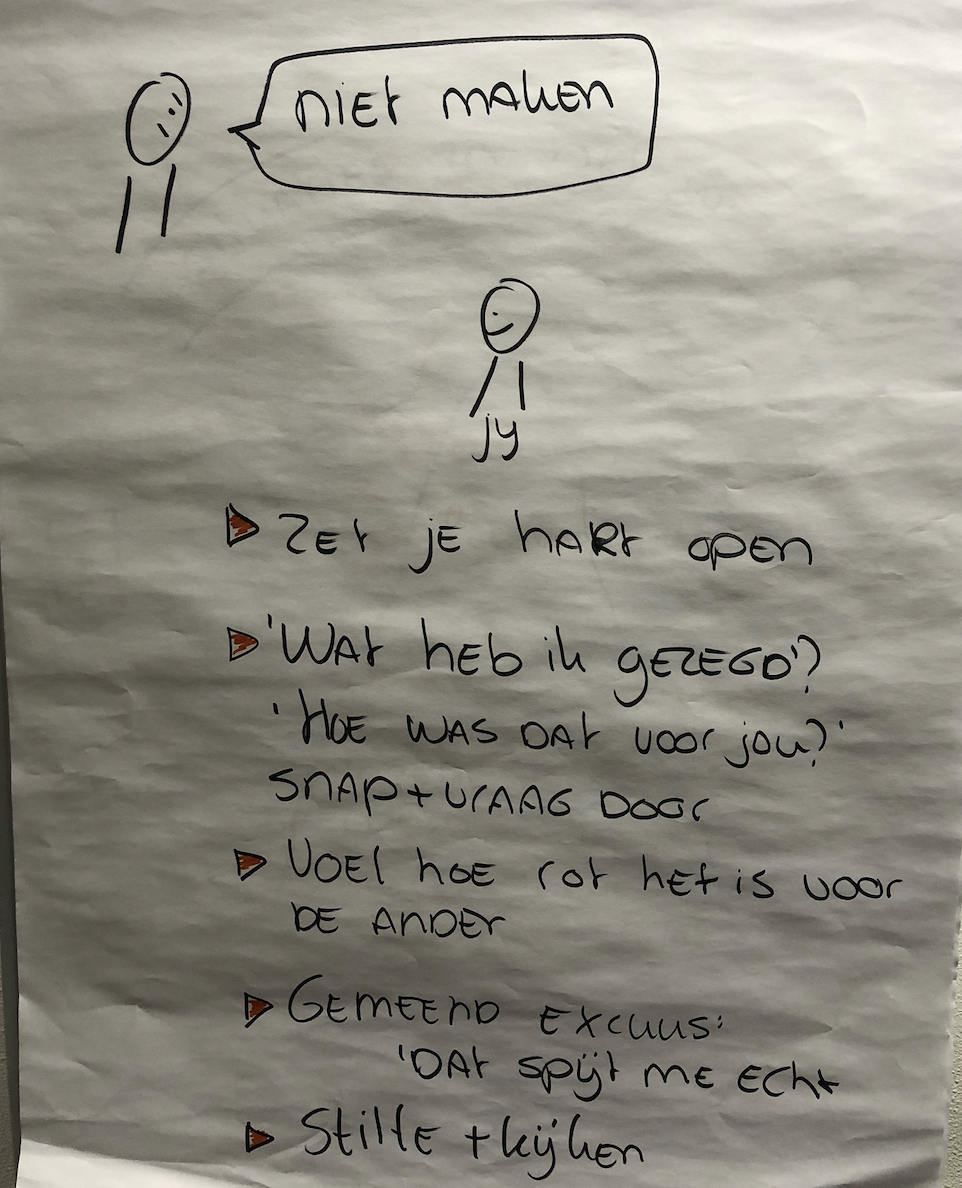 niet maken
jy
Zet je hart open
'Wat heb ik gezegd'?
'Hoe was dat voor jou?'
snap + vraag door
Voel hoe rot het is voor
de ander
Gemeend excuus:
'Dat spijt me echt
Stilte + kijken